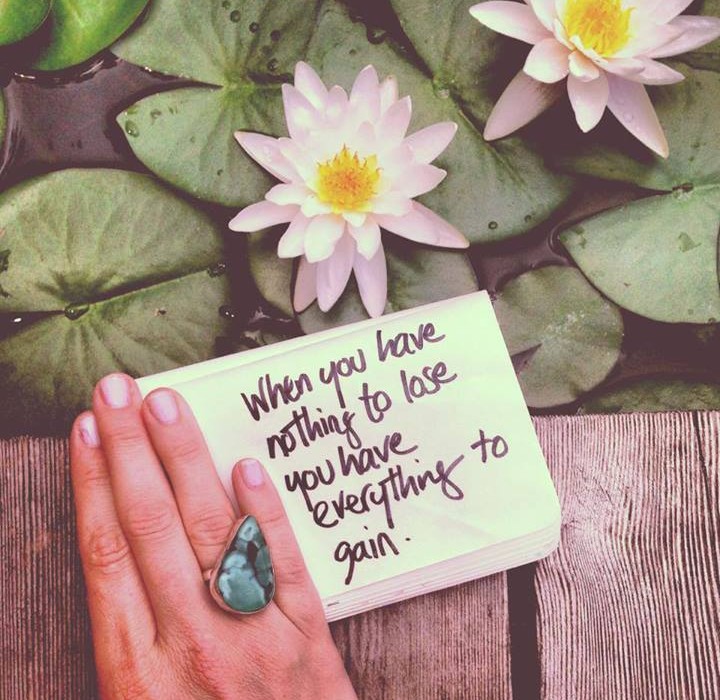 When you have
nothing to lose
you have
everything to
gain.